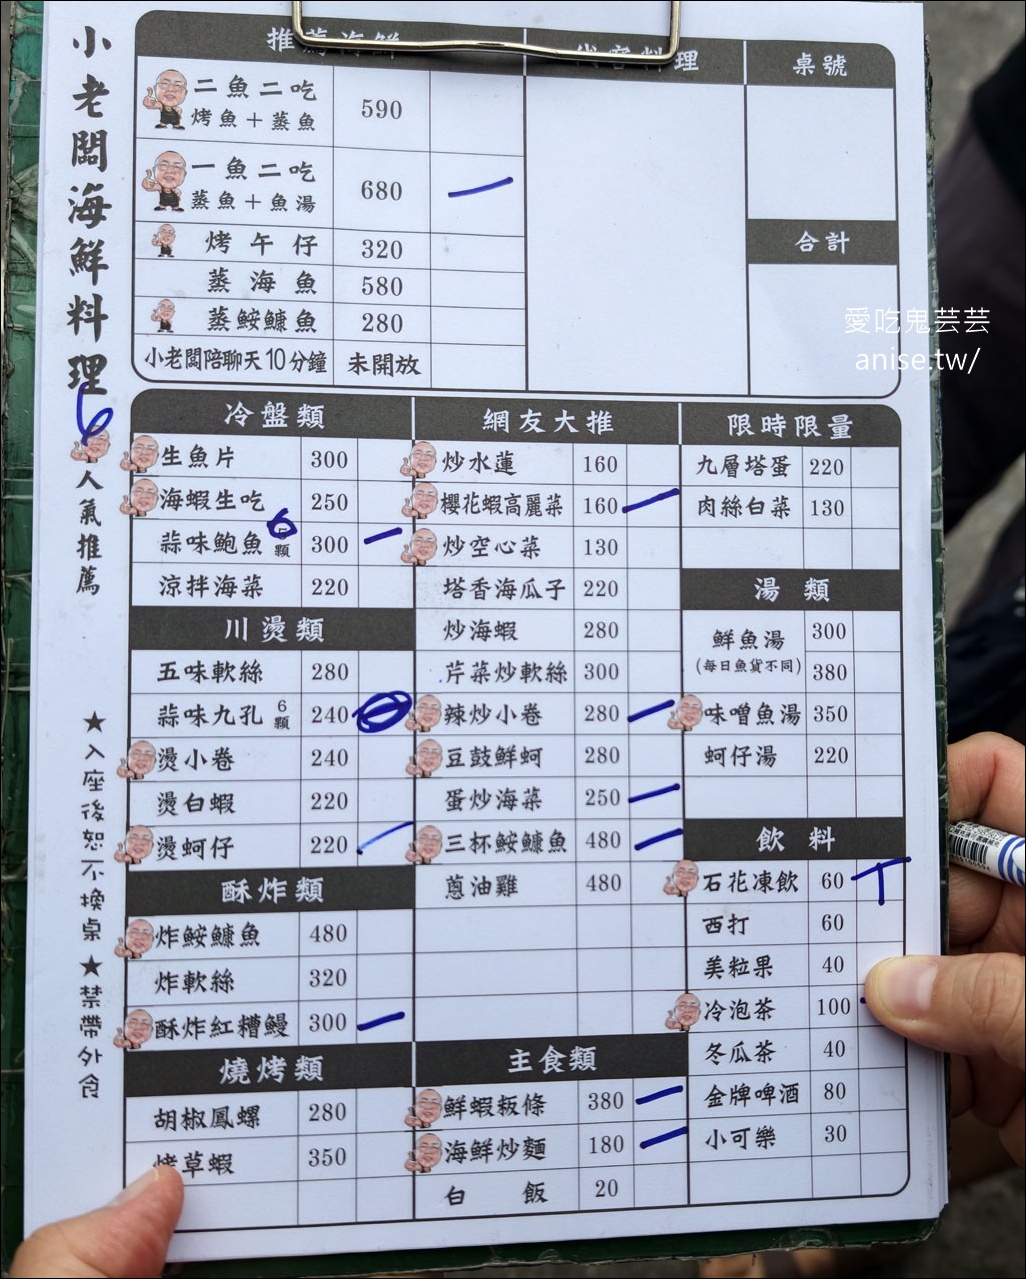 小老闆海鮮料理
6
人氣推薦
★入座後恕不換桌★禁帶外食
推薦海鮮
二魚二吃 590
烤魚＋蒸魚
一魚二吃 680
蒸魚＋魚湯
烤午仔 320
蒸海魚 580
蒸鮟鱇魚 280
小老闆陪聊天10分鐘 未開放
代客料理
桌號
合計
愛吃鬼芸芸
anise.tw/
冷盤類
生魚片 300
海蝦生吃 250
蒜味鮑魚 6顆 300
涼拌海菜 220
川燙類
五味軟絲 280
蒜味九孔 6顆 240
燙小卷 240
燙白蝦 220
燙蚵仔 220
酥炸類
炸鮟鱇魚 480
炸軟絲 320
酥炸紅糟鰻 300
燒烤類
胡椒鳳螺 280
烤草蝦 350
網友大推
炒水蓮 160
櫻花蝦高麗菜 160
炒空心菜 130
塔香海瓜子 220
炒海蝦 280
芹菜炒軟絲 300
辣炒小卷 280
豆鼓鮮蚵 280
蛋炒海菜 250
三杯鮟鱇魚 480
蔥油雞 480
主食類
鮮蝦粄條 380
海鮮炒麵 180
白飯 20
限時限量
九層塔蛋 220
肉絲白菜 130
湯類
鮮魚湯 300
(每日魚貨不同) 380
味噌魚湯 350
蚵仔湯 220
飲料
石花凍飲 60
西打 60
美粒果 40
冷泡茶 100
冬瓜茶 40
金牌啤酒 80
小可樂 30